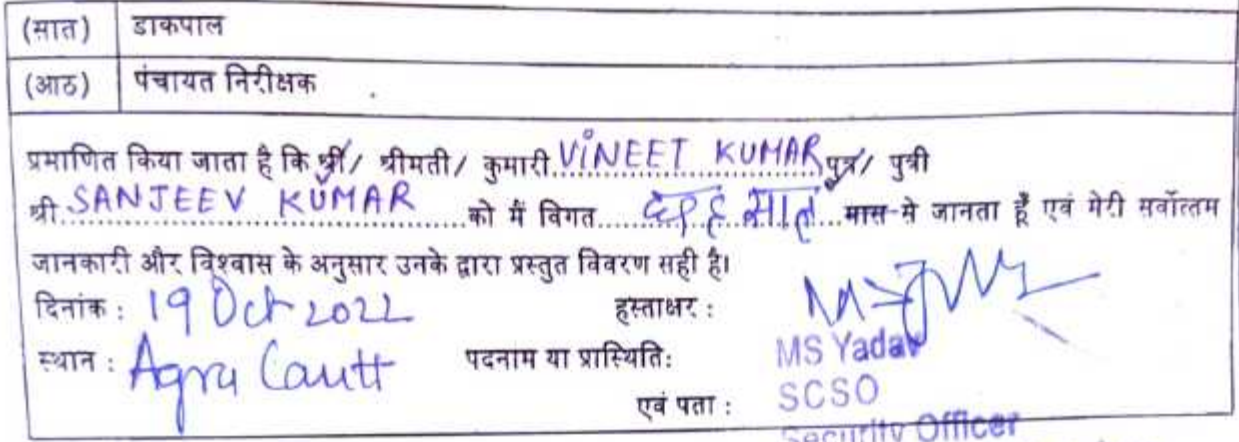 (सात) डाकपाल
(आठ) पंचायत निरीक्षक
प्रमाणित किया जाता है कि श्री/ श्रीमती/ कुमारी VINEET KUMAR पुत्र/ पुत्री
श्री SANJEEV KUMAR को मैं विगत साल मास से जानता हूँ एवं मेरी सर्वोत्तम
जानकारी और विश्वास के अनुसार उनके द्वारा प्रस्तुत विवरण सही है।
दिनांक : 19 Oct 2022 हस्ताक्षर :
स्थान : Agra Cantt पदनाम या प्रास्थिति: MS Yadav
एवं पता : SCSO
Security Officer